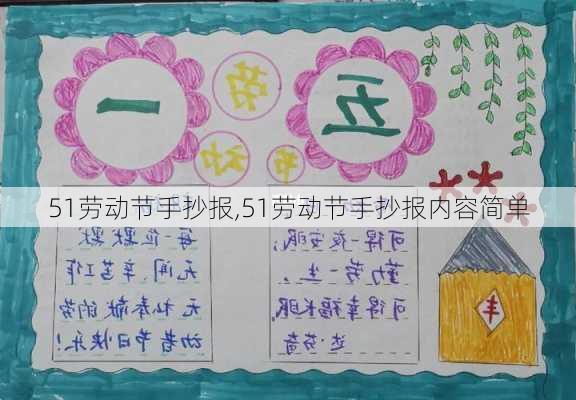 五一
劳
51劳动节手抄报,51劳动节手抄报内容简单
可得一夜安眠;
勤劳一生,
可得幸福长眠。
达·芬奇
每一位默默
无闻、辛苦工作
无私奉献的劳
动者节日快乐!
丰